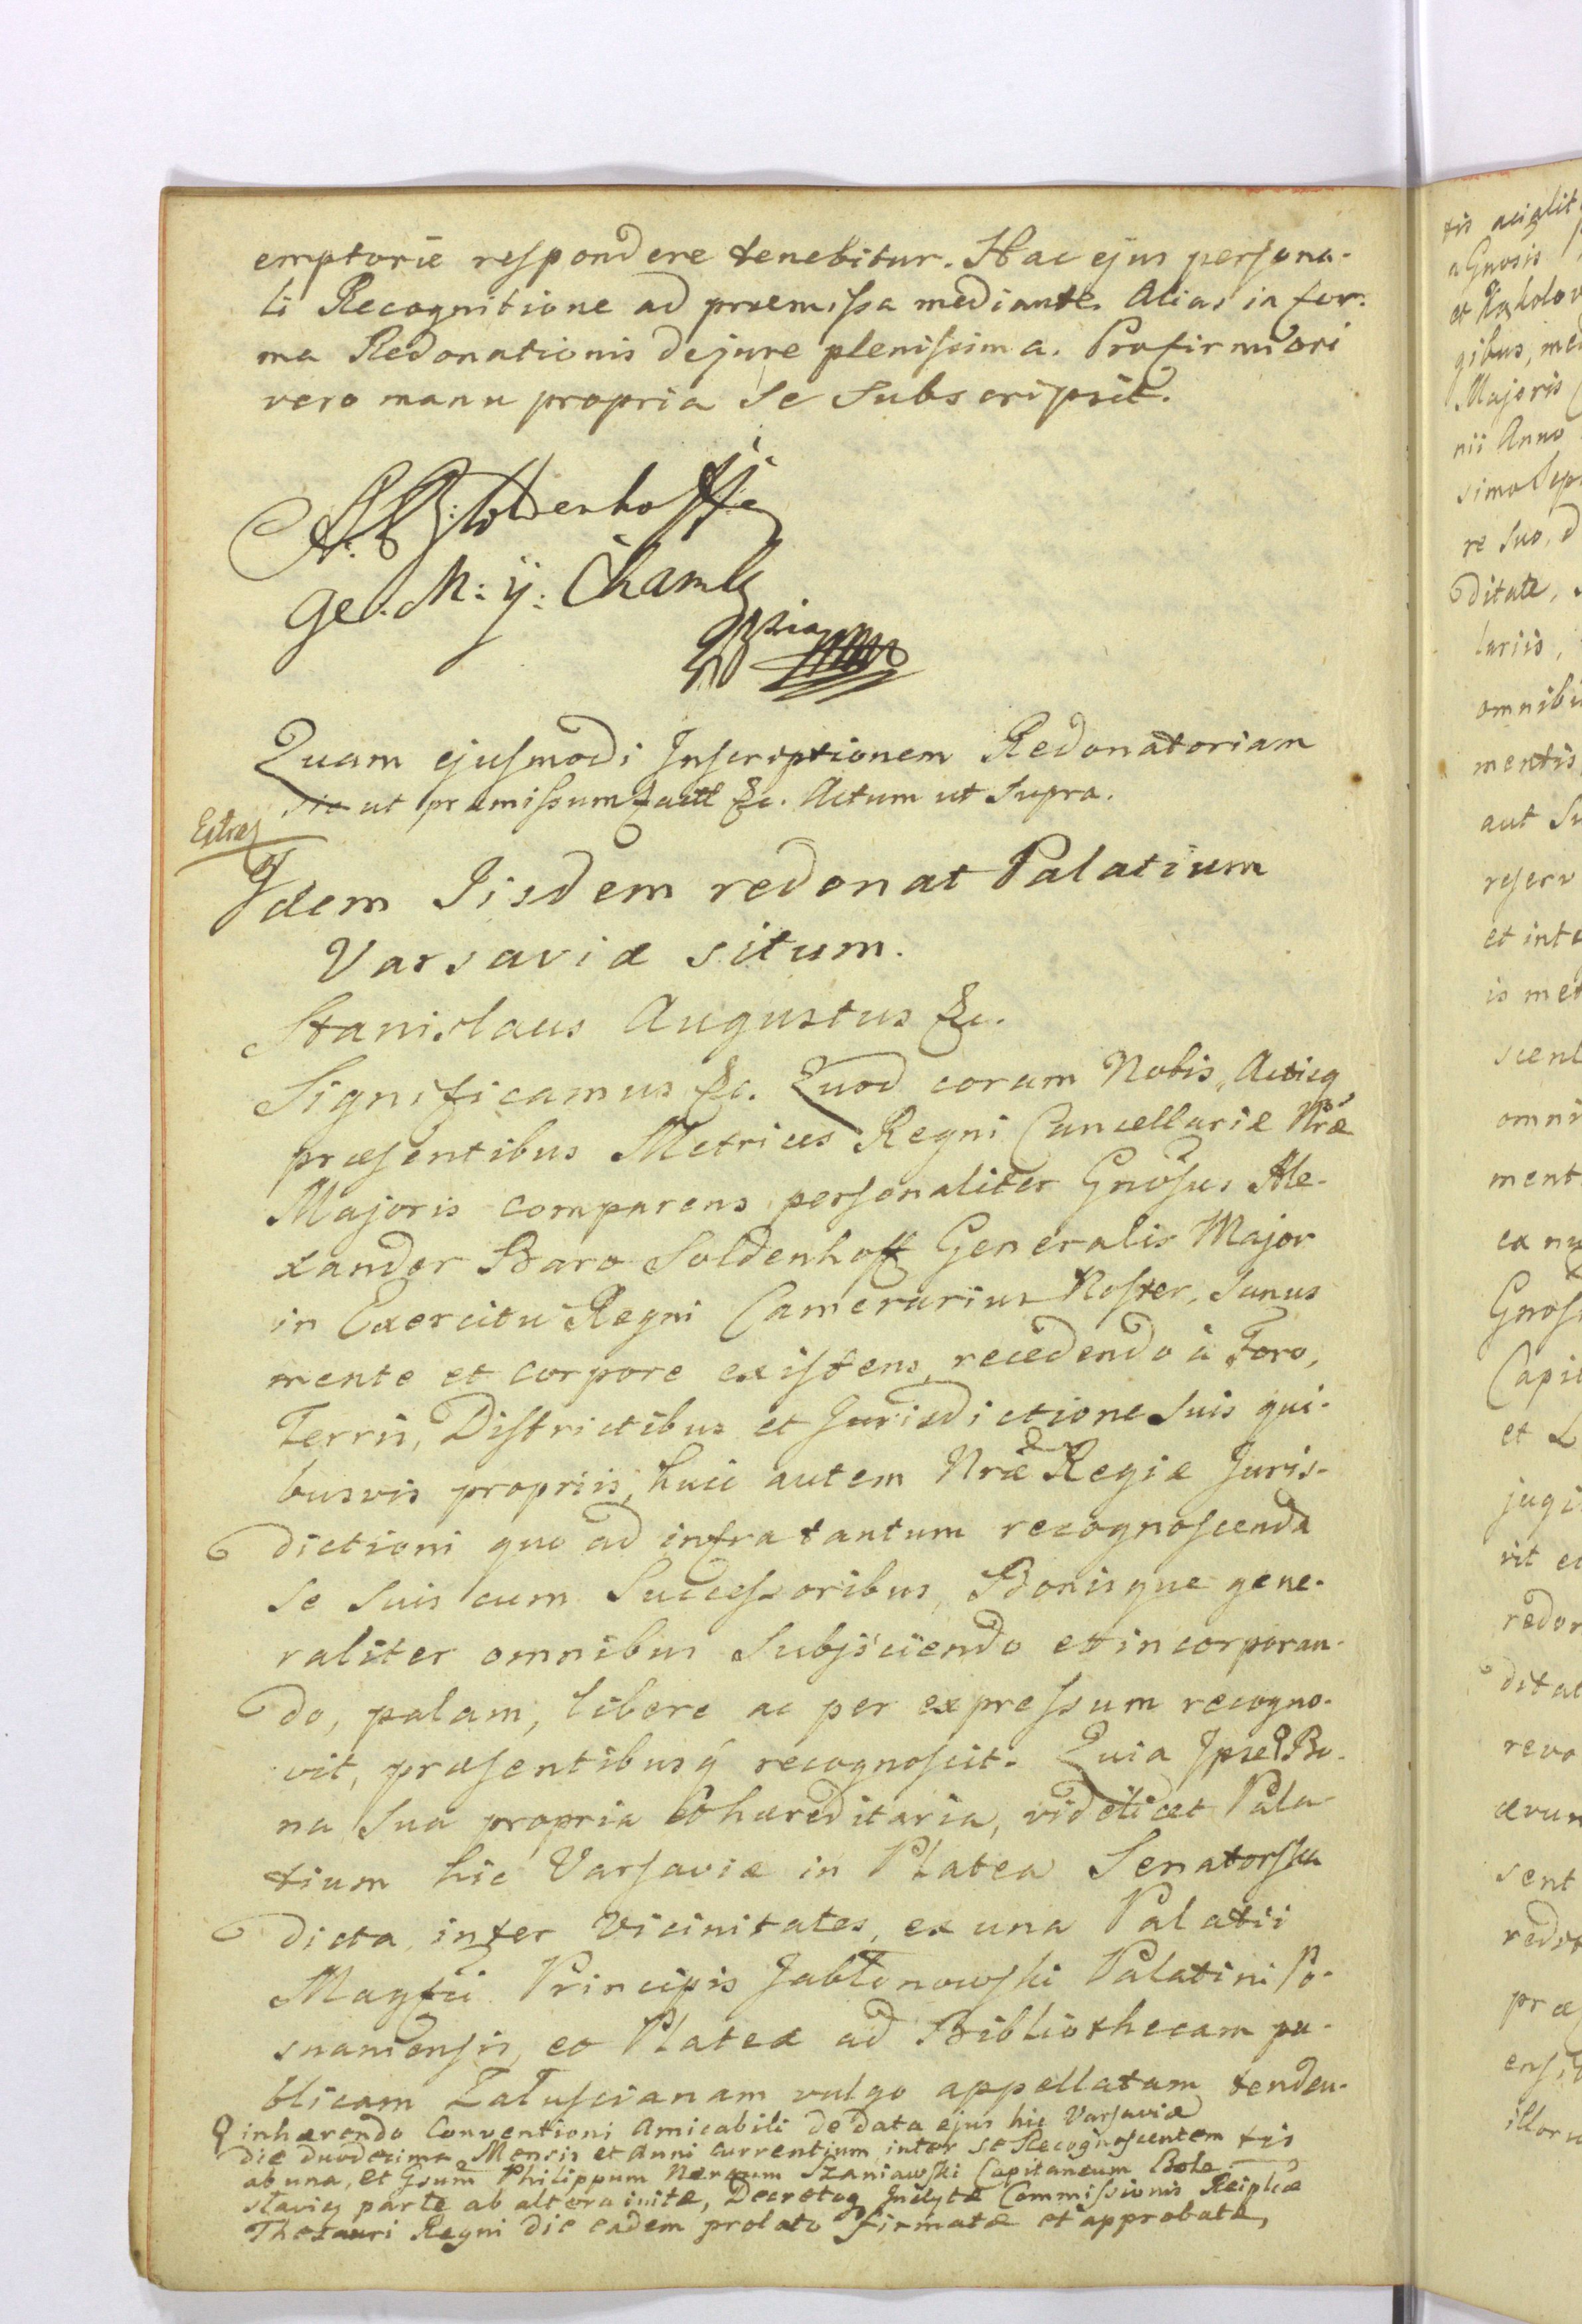 emptorie respondere tenebitur. Hac ejus persona-
li Recognitione ad præmissa mediante. Alias in for-
ma Redonationis de jure plenissima. Profirmiori
vero manu propria Se Subscripsit.
A. B. Soldenhoff
Ge. M: y: Chamb
Quam ejusmodi Inscriptionem Redonatoriam
sic ut præmissum facit &c. Actum ut Supra.
Extrad
Idem Iisdem redonat Palatium
Varsaviæ situm.
Stanislaus Augustus &c.
Significamus &c. Quod coram Nobis, Actisq
præsentibus Metrices Regni Cancellariæ Nræ
Majoris comparens personaliter Gnosus Ale-
xander Baro Soldenhoff Generalis Major
in Exercitu Regni Camerarius Noster, Sanus
mente et corpore existens, recedendo à Foro,
Terris, Districtibus et Jurisdictione Suis qui-
busvis propriis, huic autem Nræ Regiæ Juris-
dictioni quo ad infra tantum recognoscenda
Se Suis cum Successoribus, Bonisque gene-
raliter omnibus Subjiciendo et incorporan-
do, palam, libere ac per expressum recogno-
vit, præsentibusq recognoscit. Quia Ipse Bo-
na Sua propria hæreditaria, videlicet Pala-
tium hic Varsaviæ in Platea Senatorska
dicta, inter Vicinitates, ex una Palatii
Magfici Principis Jabłonowski Palatini Po-
snaniensis, et Plateæ ad Bibliothecam pu-
blicam Załuscianam vulgo appellatam tenden-
tis
inhærendo Conventioni Amicabili de data ejus hic Varsaviæ
die duodecima Mensis et Anni currentium inter Se Recognoscentem
ab una, et Gsum Philippum Nereum Szaniawski Capitaneum Bole-
slavien parte ab altera initæ, Decretoq Inclytæ Commissionis Reiplicæ
Thesauri Regni die eadem prolato firmatæ et approbatæ,